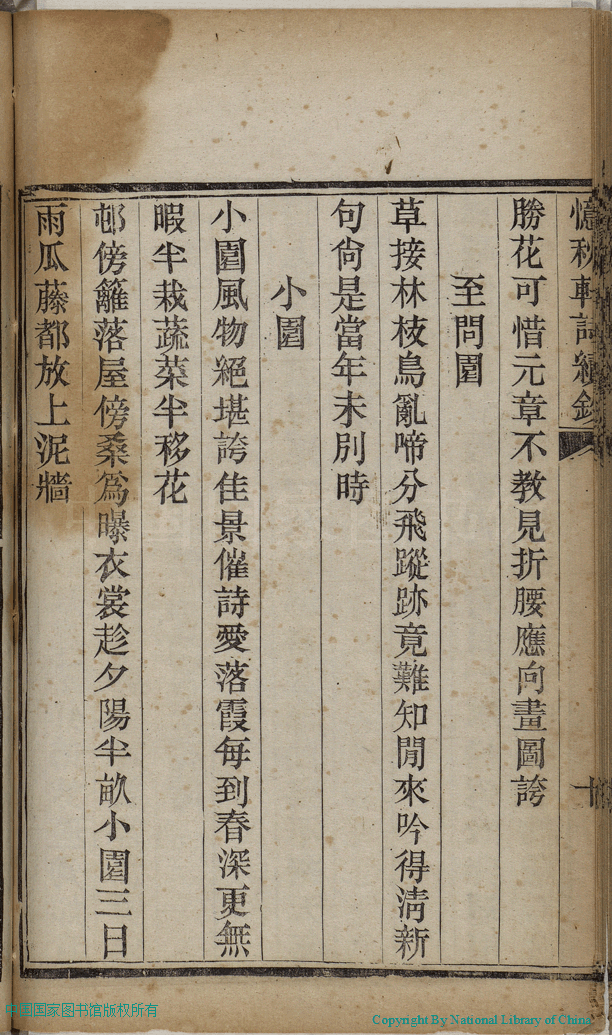 憶秋軒詩續鈔
十
勝花可惜元章不教見折腰應向畫圖誇
至問園
草接林枝鳥亂啼分飛蹤跡竟難知閒來吟得清新
句尙是當年未別時
小園
小園風物絕堪誇佳景催詩愛落霞每到春深更無
暇半栽蔬菜半移花
邨傍籬落屋傍桑爲曝衣裳趁夕陽半畝小園三日
雨瓜藤都放上泥牆
中国国家图书馆版权所有
Copyright By National Library of China